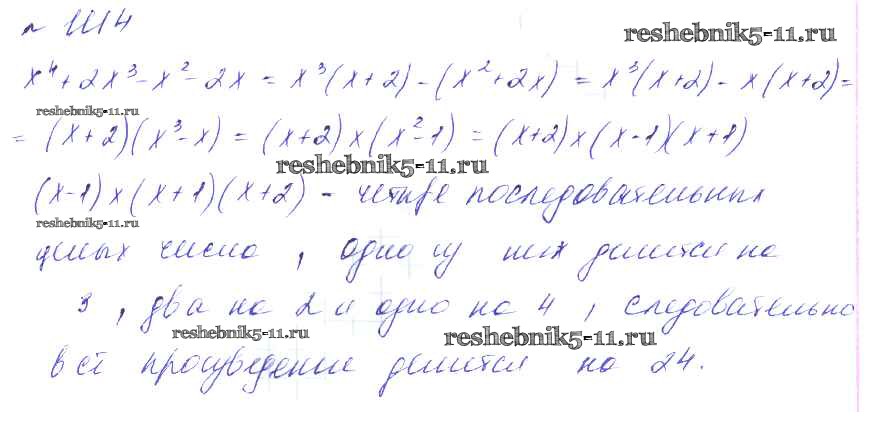 № 1114
reshebnik5-11.ru
x⁴ + 2x³ - x² - 2x = x³(x+2) - (x² + 2x) = x³(x+2) - x(x+2) =
reshebnik5-11.ru
= (x+2)(x³-x) = (x+2)x(x²-1) = (x+2)x(x-1)(x+1)
reshebnik5-11.ru
(x-1)x(x+1)(x+2) - четыре последовательных
reshebnik5-11.ru
целых числа, одно из них делится на
3, два на 2 и одно на 4, следовательно
reshebnik5-11.ru reshebnik5-11.ru
всё произведение делится на 24.